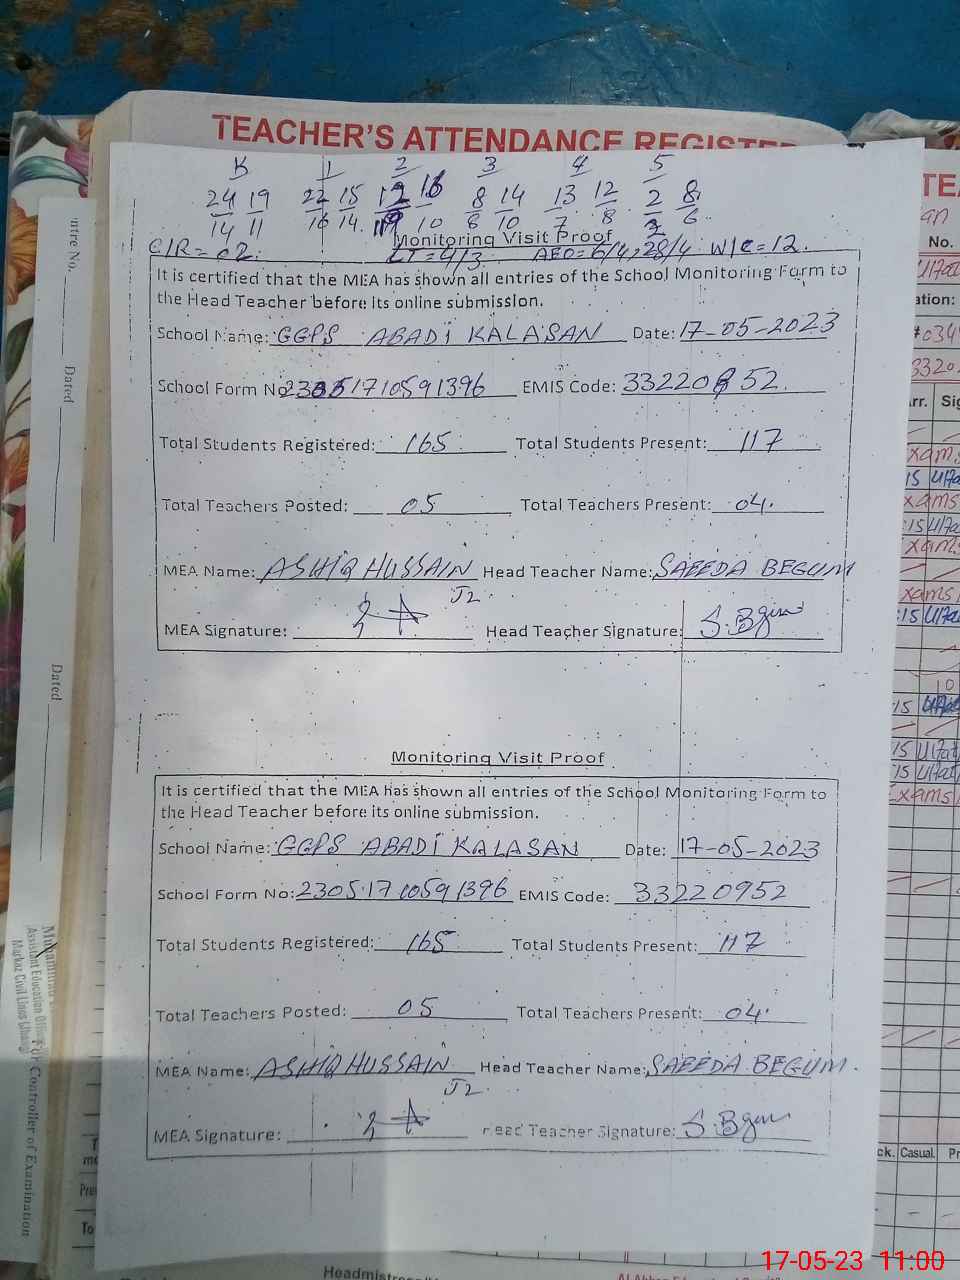 TEACHER'S ATTENDANCE REGISTER
K 1 2 3 4 5
24 19 22 15 12 16 8 14 13 12 2 8
14 11 16 14. 10 8 10 7 8 2 6
C/R = 02. LT = 4/3 AEO = 6/4, 28/4 W/C = 12.
Monitoring Visit Proof
It is certified that the MEA has shown all entries of the School Monitoring Form to
the Head Teacher before its online submission.
School Name: GGPS ABADI KALASAN Date: 17-05-2023
School Form No: 23051710591396 EMIS Code: 33220952
Total Students Registered: 165 Total Students Present: 117
Total Teachers Posted: 05 Total Teachers Present: 04.
MEA Name: ASHIQ HUSSAIN Head Teacher Name: SAEEDA BEGUM
J2
MEA Signature: Head Teacher Signature: S. Bgum
Monitoring Visit Proof
It is certified that the MEA has shown all entries of the School Monitoring Form to
the Head Teacher before its online submission.
School Name: GGPS ABADI KALASAN Date: 17-05-2023
School Form No: 23051710591396 EMIS Code: 33220952
Total Students Registered: 165 Total Students Present: 117
Total Teachers Posted: 05 Total Teachers Present: 04.
MEA Name: ASHIQ HUSSAIN Head Teacher Name: SAEEDA BEGUM.
J2
MEA Signature: Head Teacher Signature: S. Bgum
Dated
Dated
Assistant Education Officer
Markaz Civil Lines Jhang
Controller of Examination
No.
Arr. Sig
Casual
17-05-23 11:00